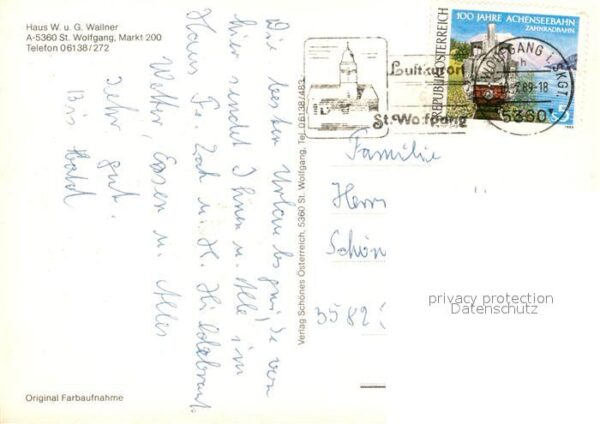 Haus W. u. G. Wallner
A-5360 St. Wolfgang, Markt 200
Telefon 06138/272
Die besten Urlaubsgrüße von
hier sendet Ihnen u. Alle im
Haus Fr. Zach u. H. Hildebrant.
Wetter, Essen u. Alles
sehr gut.
Bis bald
Original Farbaufnahme
Verlag Schönes Österreich, 5360 St. Wolfgang, Tel. 06138/483
100 JAHRE ACHENSEEBAHN
ZAHNRADBAHN
REPUBLIK ÖSTERREICH
S5
Luftkurort
St. Wolfgang
WOLFGANG i. SKGT.
89-18
5360
Familie
Herrn
Schön
3582
privacy protection
Datenschutz